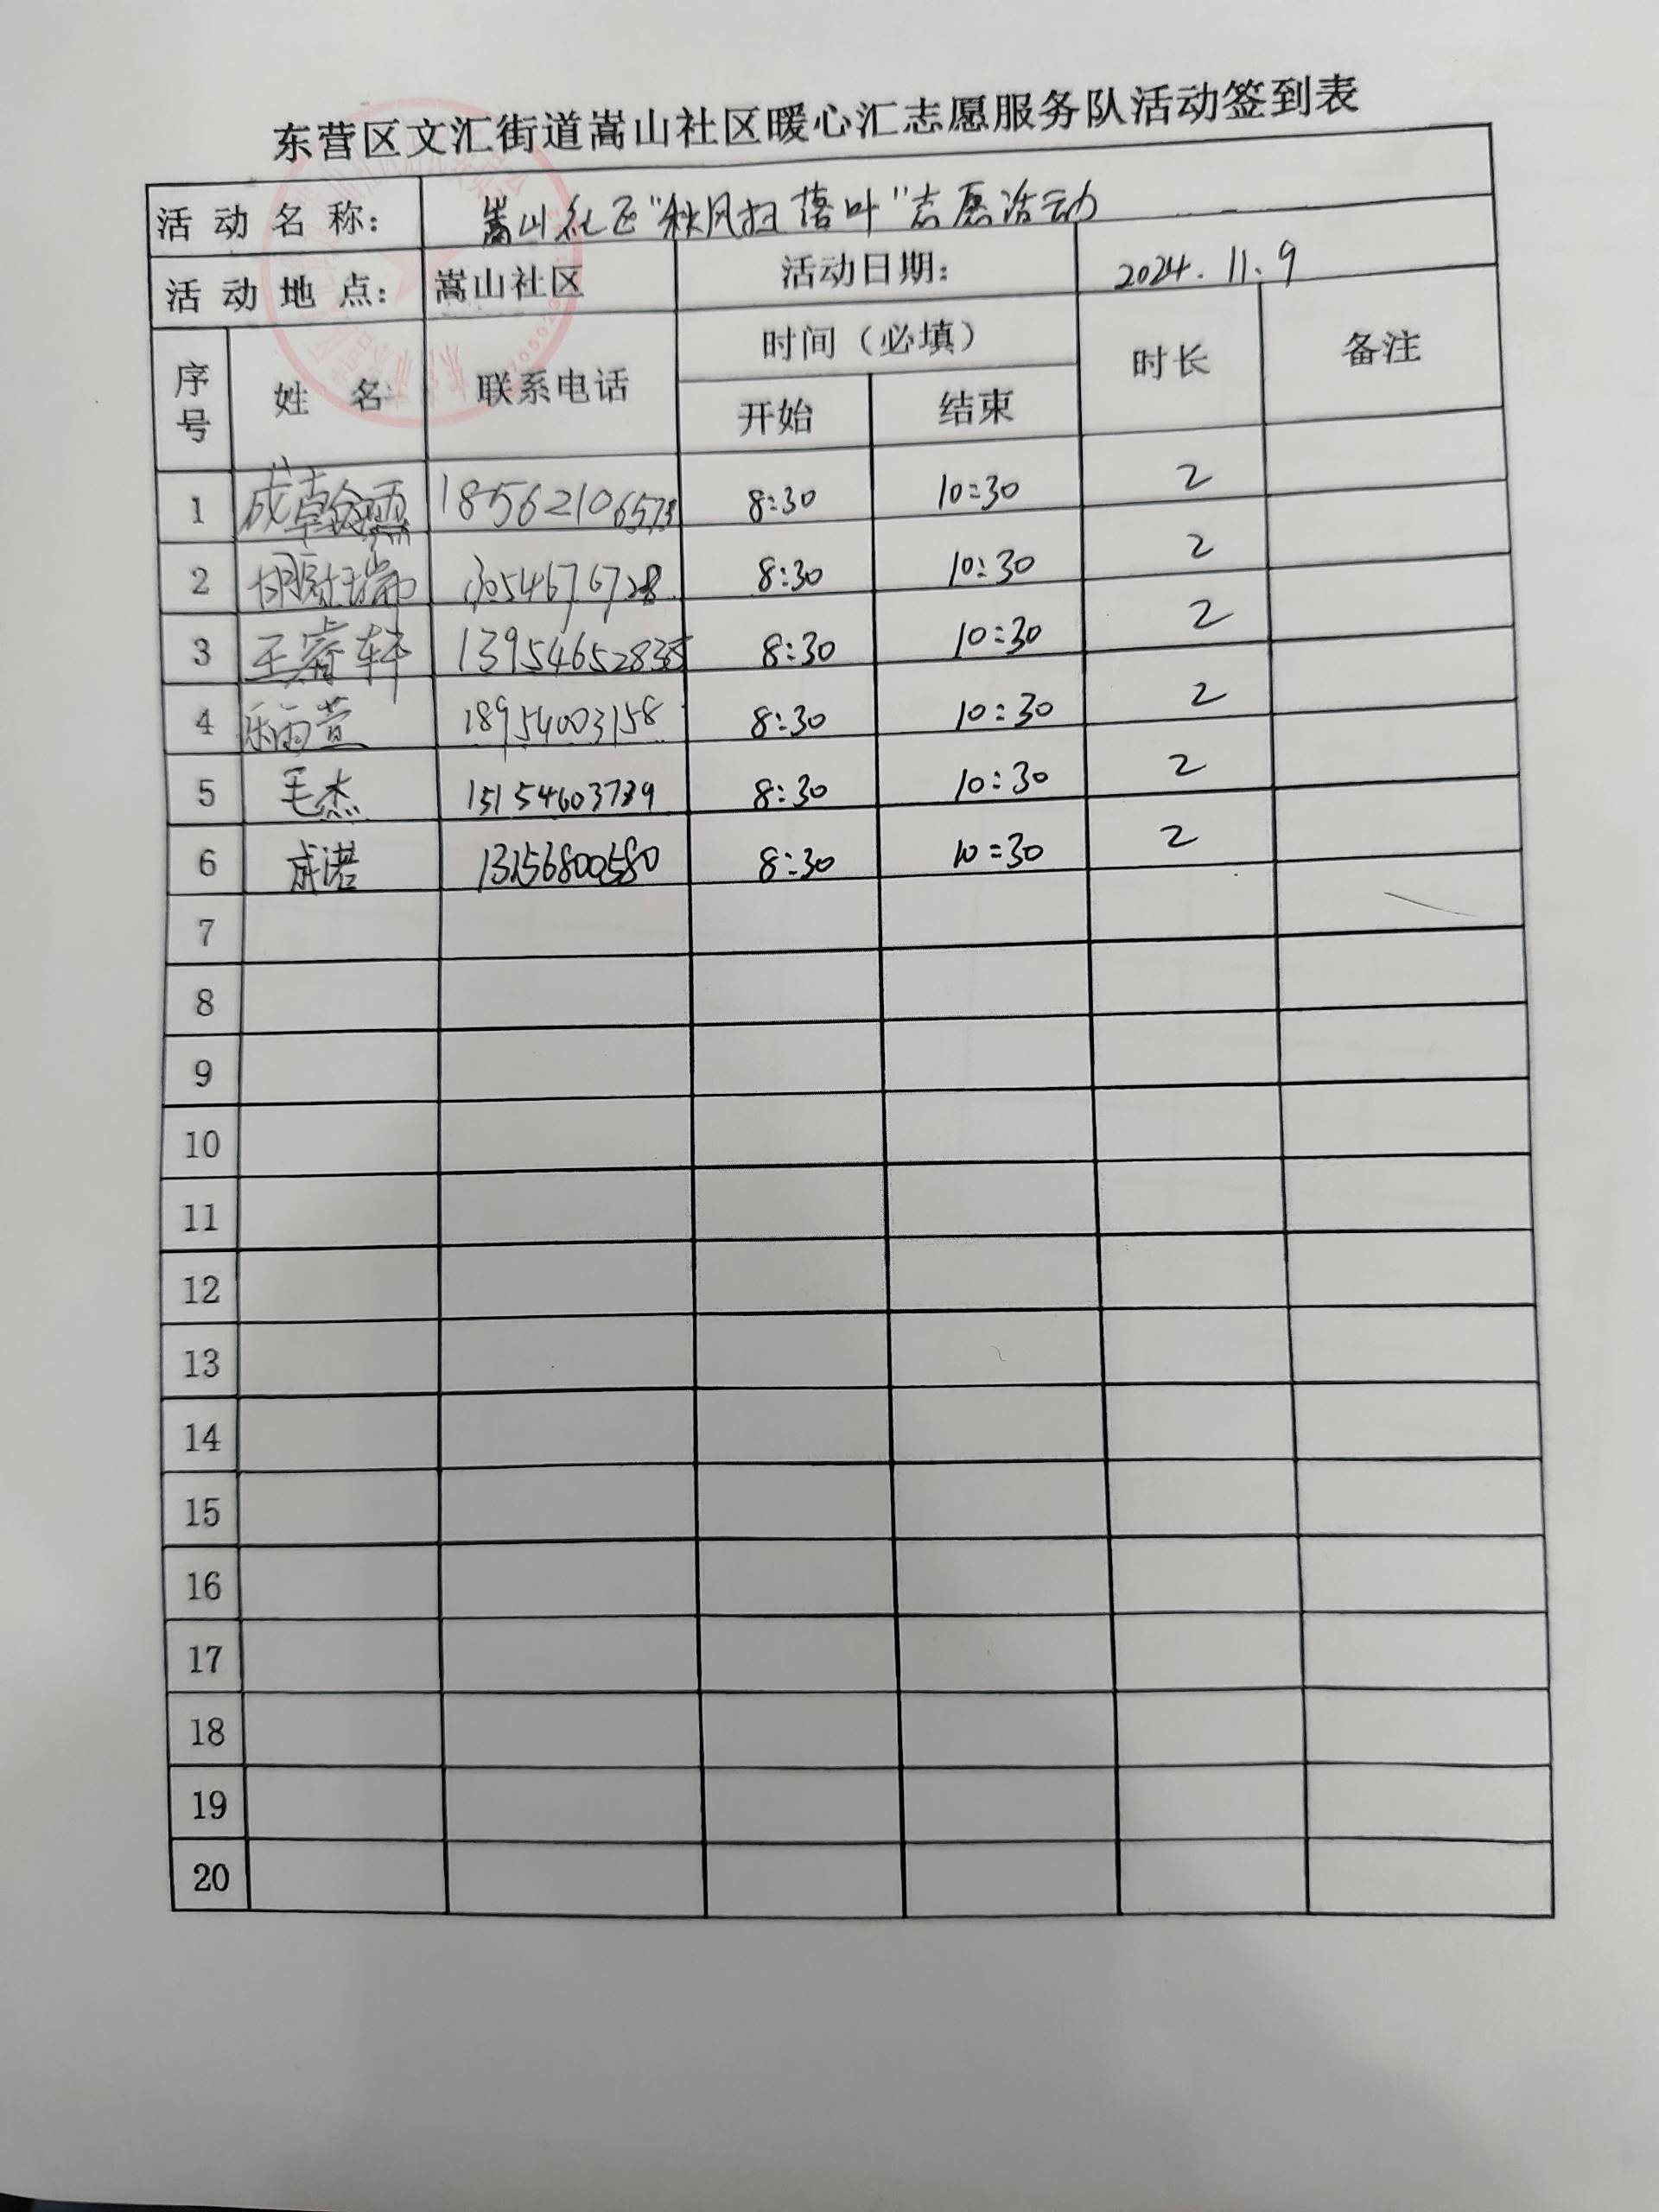 东营区文汇街道嵩山社区暖心汇志愿服务队活动签到表
活动名称： 嵩山社区"秋风扫落叶"志愿活动
活动地点： 嵩山社区 活动日期： 2024.11.9
序号 姓名 联系电话 时间（必填） 时长 备注
开始 结束
1 8:30 10:30 2
2 8:30 10:30 2
3 王睿轩 8:30 10:30 2
4 雨萱 18954003158 8:30 10:30 2
5 毛杰 8:30 10:30 2
6 成诺 8:30 10:30 2
7
8
9
10
11
12
13
14
15
16
17
18
19
20